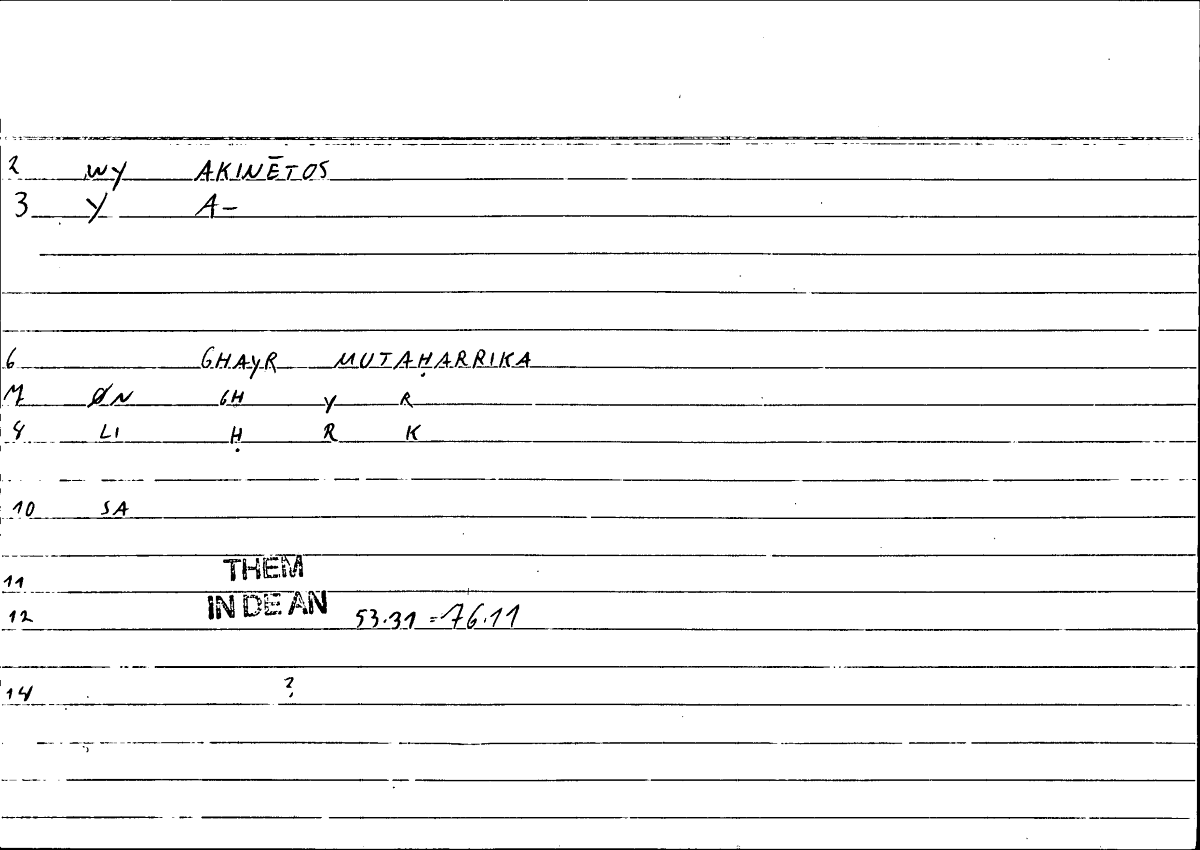 2 WY AKINĒTOS
3 Y A-
6 GHAYR MUTAḤARRIKA
7 ØN GH Y R
8 LI Ḥ R K
10 SA
11 THEM
12 IN DE AN 53.31 = 76.11
14 ?